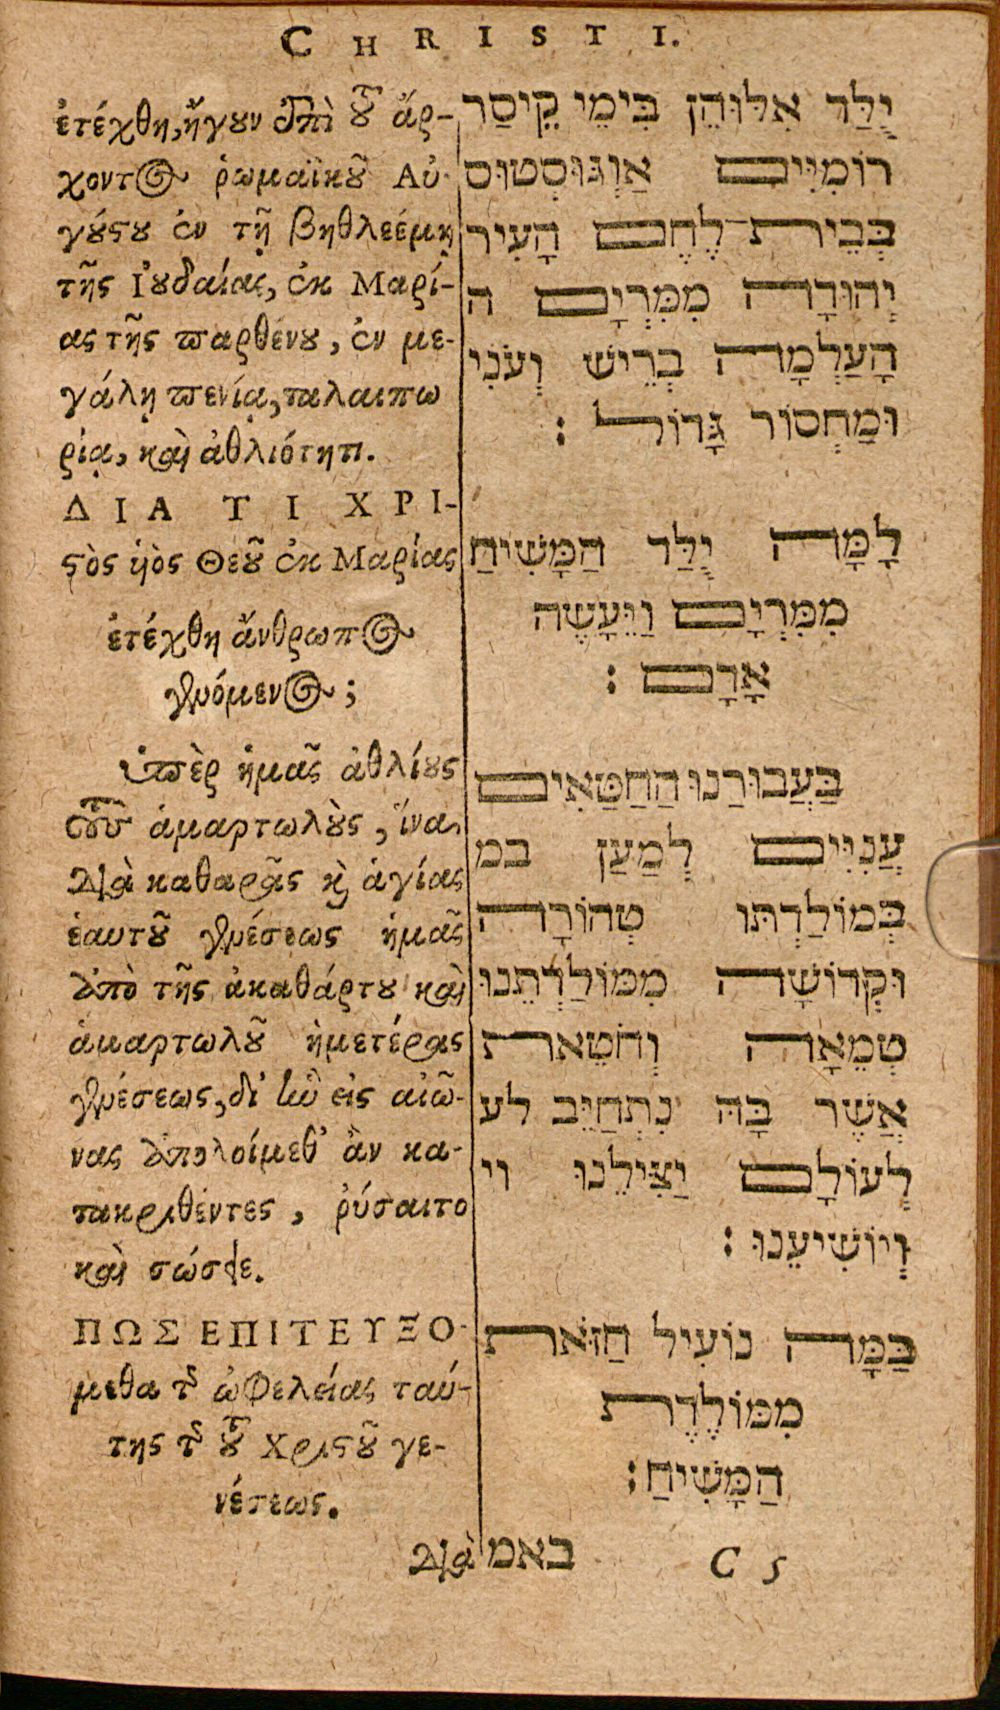 CHRISTI.
ἐτέχθη, ἤγουν ἐπὶ τοῦ ἄρ-
χοντος ῥωμαϊκοῦ Αὐ-
γούστου ἐν τῇ βηθλεέμῃ
τῆς Ἰουδαίας, ἐκ Μαρί-
ας τῆς παρθένου, ἐν με-
γάλῃ πενίᾳ, ταλαιπω
ρίᾳ, καὶ ἀθλιότητι.
ΔΙΑ ΤΙ ΧΡΙ-
στὸς ὑὸς Θεοῦ ἐκ Μαρίας
ἐτέχθη ἄνθρωπος
γενόμενος;
ὑπὲρ ἡμᾶς ἀθλίους
τοὺς ἁμαρτωλοὺς, ἵνα
διὰ καθαρᾶς καὶ ἁγίας
ἑαυτοῦ γενέσεως ἡμᾶς
ἀπὸ τῆς ἀκαθάρτου καὶ
ἁμαρτωλοῦ ἡμετέρας
γενέσεως, δι' ἣν εἰς αἰῶ-
νας ἀπολοίμεθ' ἂν κα-
τακριθέντες, ῥύσαιτο
καὶ σώσειε.
ΠΩΣ ΕΠΙΤΕΥΞΟ-
μεθα τῆς ὠφελείας ταύ-
της τῆς τοῦ Χριστοῦ γε-
νέσεως.
διὰ
יֻלַּד אִלּוּהֵן בִּימֵי קֵיסַר
רוֹמִיִּים אַוְגּוּסְטוּס
בְּבֵית־לֶחֶם הָעִיר
יְהוּדָה מִמִּרְיָם ה
הָעַלְמָה בְּרֵישׁ וְעֹנִי
וּמַחְסוֹר גָּדוֹל :
לָמָּה יֻלַּד הַמָּשִׁיחַ
מִמִּרְיָם וַיֵּעָשֶׂה
אָדָם :
בַּעֲבוּרַנוּ הַחַטָּאִים
עֲנִיִּים לְמַעַן במ
בְּמוֹלַדְתּוֹ טְהוֹרָה
וּקְדוֹשָׁה מִמּוֹלַדְתֵּנוּ
טְמֵאָה וְחֹטֵאת
אֲשֶׁר בָּהּ נִתְחַיֵּב לע
לְעוֹלָם יַצִּילֵנוּ וי
וְיוֹשִׁיעֵנוּ :
בַּמָּה נוֹעִיל הַזֹּאת
מִמּוֹלֶדֶת
הַמָּשִׁיחַ :
באמ
C 5